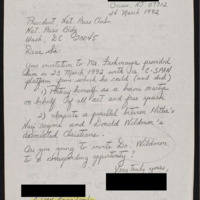 26 March 1992
President, Nat. Press Club
Nat. Press Bldg
Wash, DC 20045
Dear Sir:
Your invitation to Mr. provided
him on 23 March 1992 with a C-SPAN
platform from which he could (and did)
1) Portray himself as a brave martyr
on behalf of art and free speech
2) Impute a parallel between Hitler's
Nazi regime and Donald Wildmon's
Christians.
Are you going to invite Dr. Wildmon
to a corresponding opportunity?
Very truly yours,